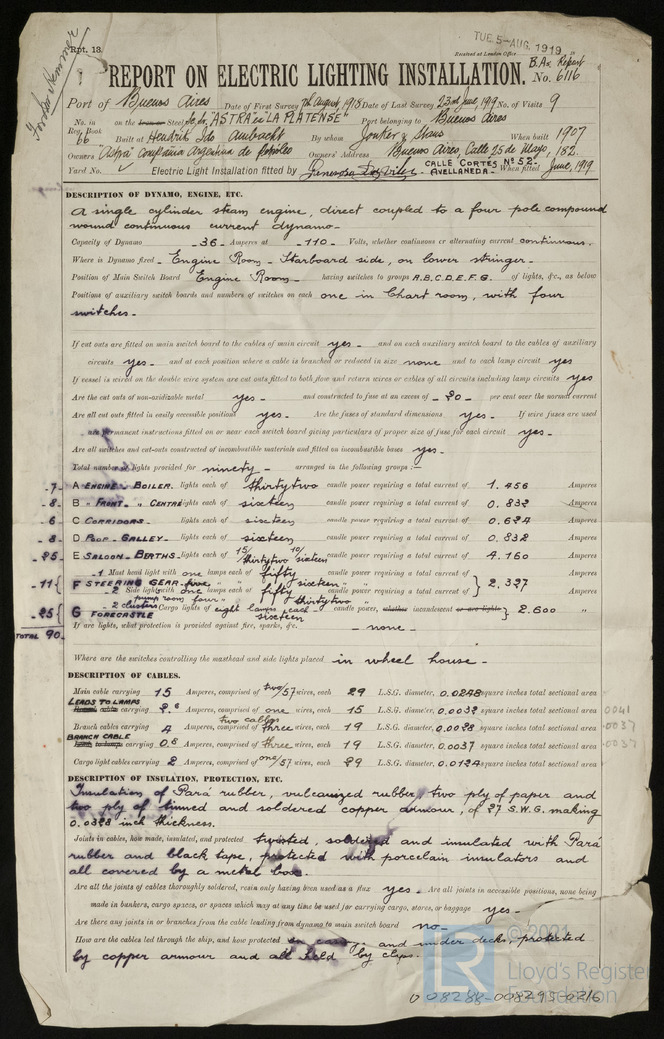 Rpt. 13.
TUE. 5-AUG. 1919
Received at London Office
B.A. Report
REPORT ON ELECTRIC LIGHTING INSTALLATION. No. 6116
Port of Buenos Aires Date of First Survey 7th August, 1918 Date of Last Survey 23rd June, 1919 No. of Visits 9
No. in on the Iron or Steel "ASTRA" ex "LA PLATENSE" Port belonging to Buenos Aires
Reg. Book
66 Built at Hendrik Ido Ambacht By whom Jonker y Stans When built 1907
Owners "Astra" Compañia Argentina de Petróleo Owners' Address Buenos Aires, Calle 25 de Mayo, 182.
Yard No. Electric Light Installation fitted by CALLE CORTES Nº 52- AVELLANEDA. When fitted June, 1919
DESCRIPTION OF DYNAMO, ENGINE, ETC.
A single cylinder steam engine, direct coupled to a four pole compound
wound continuous current dynamo-
Capacity of Dynamo -36- Amperes at -110- Volts, whether continuous or alternating current continuous.
Where is Dynamo fixed - Engine Room - Starboard side, on lower stringer.-
Position of Main Switch Board Engine Room - having switches to groups A,B,C,D,E,F,G. of lights, &c., as below
Positions of auxiliary switch boards and numbers of switches on each one in Chart room, with four
switches.-
If cut outs are fitted on main switch board to the cables of main circuit yes - and on each auxiliary switch board to the cables of auxiliary
circuits yes - and at each position where a cable is branched or reduced in size none and to each lamp circuit yes
If vessel is wired on the double wire system are cut outs fitted to both flow and return wires or cables of all circuits including lamp circuits yes
Are the cut outs of non-oxidizable metal yes - and constructed to fuse at an excess of -20- per cent over the normal current
Are all cut outs fitted in easily accessible positions yes. Are the fuses of standard dimensions yes. If wire fuses are used
are permanent instructions fitted on or near each switch board giving particulars of proper size of fuse for each circuit yes-
Are all switches and cut-outs constructed of incombustible materials and fitted on incombustible bases yes-
Total number of lights provided for ninety - arranged in the following groups :-
-7- A ENGINE - BOILER. lights each of thirtytwo candle power requiring a total current of 1.456 Amperes
-8- B " FRONT - " CENTRE lights each of sixteen candle power requiring a total current of 0.832 Amperes
-6 C CORRIDORS. lights each of sixteen candle power requiring a total current of 0.624 Amperes
-8- D POOP - GALLEY. lights each of sixteen candle power requiring a total current of 0.832 Amperes
-25 E SALOON - BERTHS. lights each of 15/thirtytwo 10/sixteen candle power requiring a total current of 4.160 Amperes
-1 Mast head light with one lamps each of fifty candle power requiring a total current of
-11{ F STEERING GEAR five sixteen " } 2.327 Amperes
-2 Side light with one lamps each of fifty candle power requiring a total current of
pump room four " thirtytwo "
-25{ -2 clusters Cargo lights of eight lamps each - candle power, whether incandescent or arc lights } 2.600 "
G FORECASTLE sixteen
TOTAL 90-
If arc lights, what protection is provided against fire, sparks, &c. - none -
Where are the switches controlling the masthead and side lights placed in wheel house -
DESCRIPTION OF CABLES.
Main cable carrying 15 Amperes, comprised of two/37 wires, each 29 L.S.G. diameter, 0.0248 square inches total sectional area
LEADS TO LAMPS
Branch cable carrying 2.6 Amperes, comprised of one wires, each 15 L.S.G. diameter, 0.0032 square inches total sectional area 0041
two cables
Branch cables carrying 4 Amperes, comprised of three wires, each 19 L.S.G. diameter, 0.0028 square inches total sectional area .0037
BRANCH CABLE
Leads to lamps carrying 0.6 Amperes, comprised of three wires, each 19 L.S.G. diameter, 0.0037 square inches total sectional area .0037
Cargo light cables carrying 2 Amperes, comprised of one/37 wires, each 29 L.S.G. diameter, 0.0124 square inches total sectional area
DESCRIPTION OF INSULATION, PROTECTION, ETC.
Insulation of Pará rubber, vulcanized rubber, two ply of paper and
two ply of tinned and soldered copper armour, of 27 S.W.G. making
0.0328 inch thickness.
Joints in cables, how made, insulated, and protected twisted, soldered and insulated with Pará
rubber and black tape, protected with porcelain insulators and
all covered by a metal box.
Are all the joints of cables thoroughly soldered, resin only having been used as a flux yes - Are all joints in accessible positions, none being
made in bunkers, cargo spaces, or spaces which may at any time be used for carrying cargo, stores, or baggage yes-
Are there any joints in or branches from the cable leading from dynamo to main switch board no-
How are the cables led through the ship, and how protected and under decks, protected
by copper armour and all held by clips.
© 2021
LR
Lloyd's Register
Foundation
008288-008295-0216